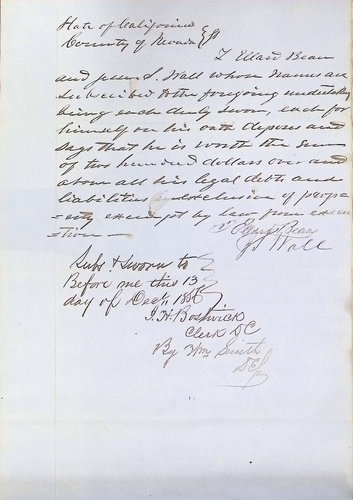 State of California } ss
County of Nevada
T Ellard Bean
and Jesse S. Wall whose names are
subscribed to the foregoing undertaking
being each duly sworn, each for
himself on his oath deposes and
says that he is worth the sum
of two hundred dollars over and
above all his legal debts and
liabilities exclusion of prop
=erty exempt by law from execu
=tion —
T Ellard Bean
J S Wall
Subs. & Sworn to
Before me this 13
day of Dec
J. H. Bostwick
Clerk DC
By Wm Smith
DC